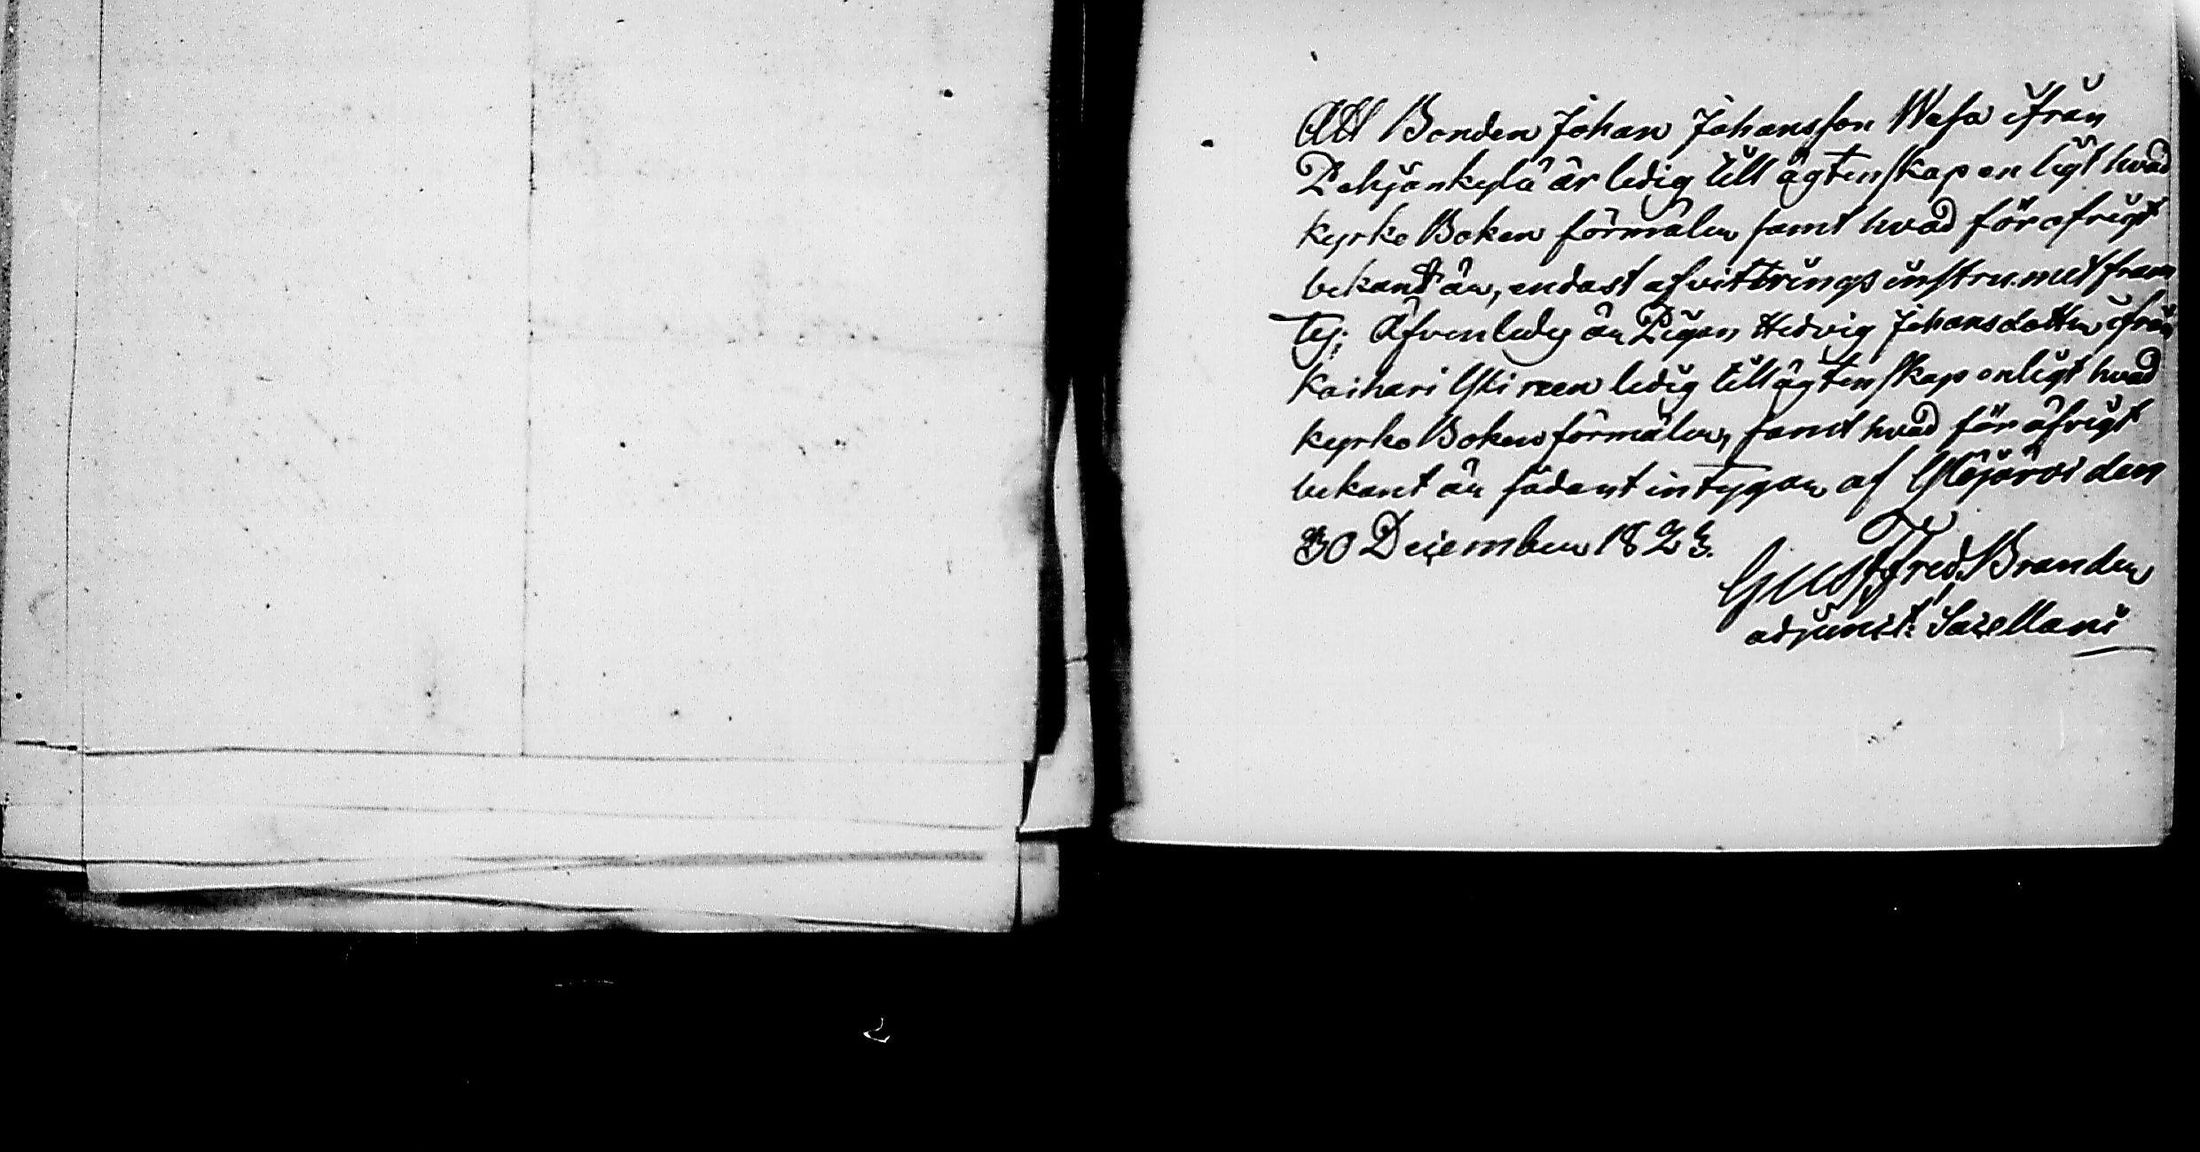 Att Bonden Johan Johansson Wasa ifrån
Pohjankylä är ledig till ägtenskap enligt hvad
kyrko Boken förmäler samt hvad för ofrigt
bekant är, endast afvittrings instrumet fram
tes; Äfvenledes är Pigan Hedvig Johansdotter ifrån
ledig till ägtenskap enligt hvad
kyrko Boken förmäler, samt hvad för äfrigt
bekant är sådant intygar af Ylöjärvi den
30 December 1823.
Gust Fred. Brander
adjunct: Sacellani